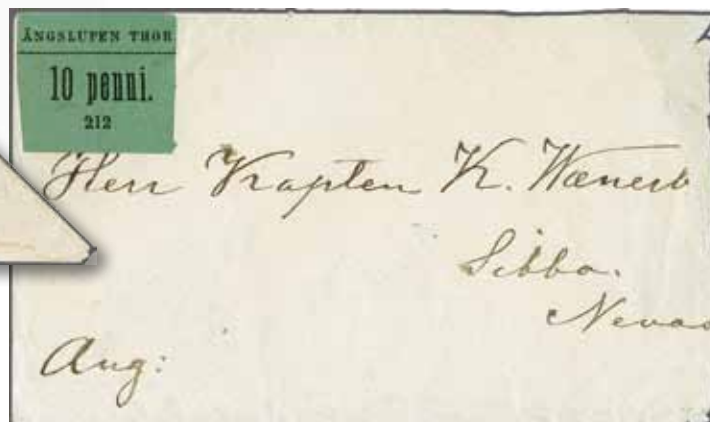 ÅNGSLUPEN THOR
10 penni.
212
Herr Kapten K. Wænerb
Sibbo.
Nevas
Aug: